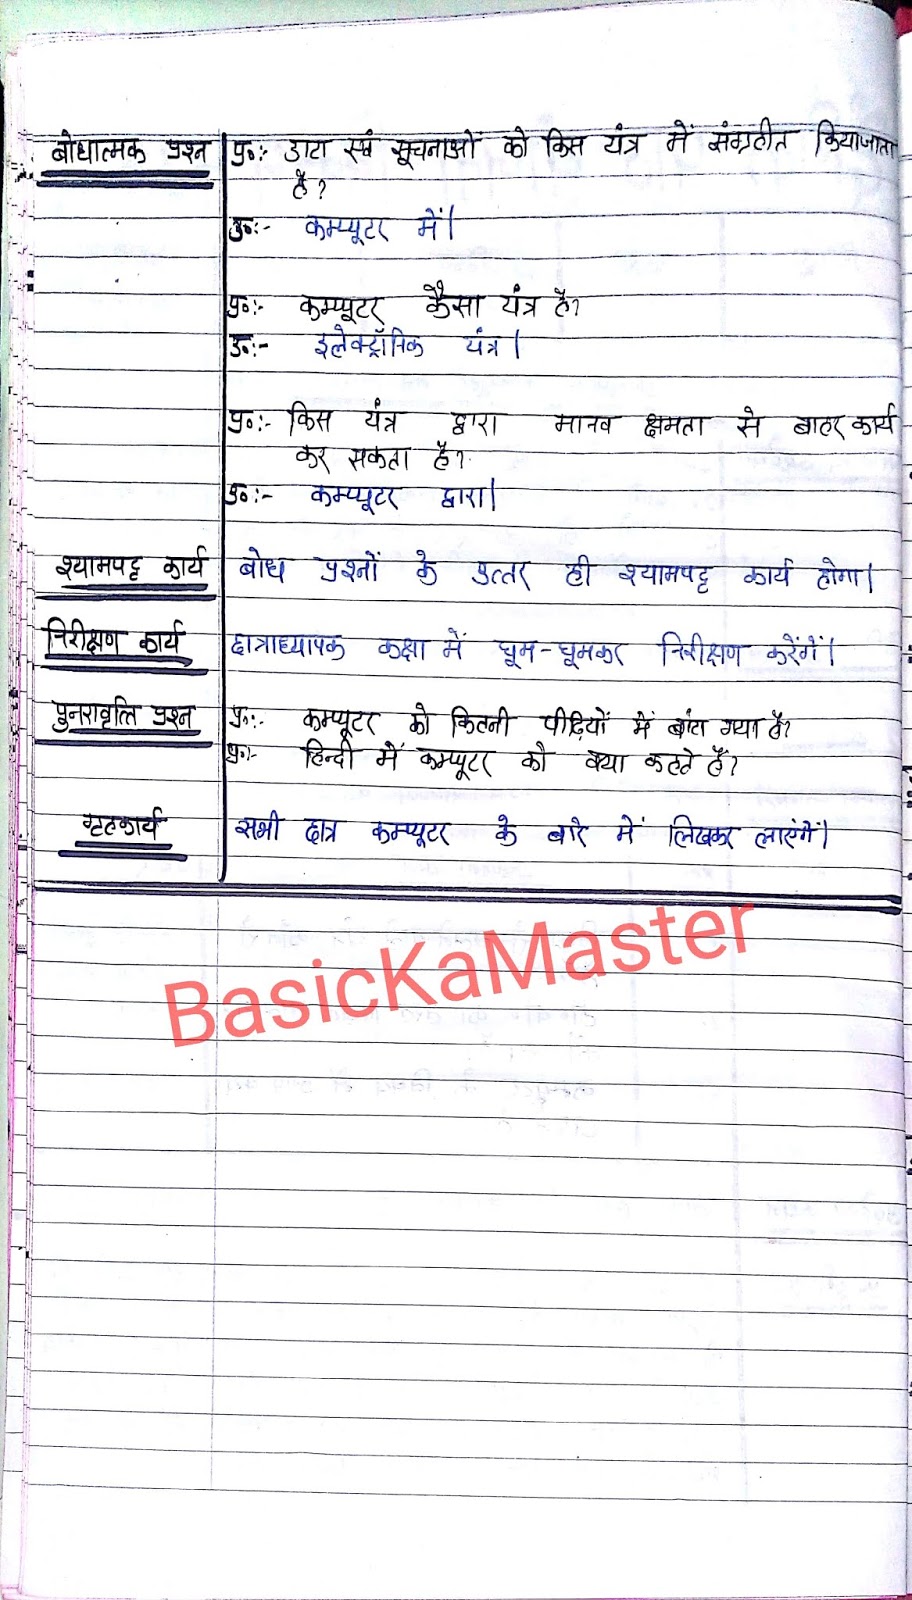 बोधात्मक प्रश्न प्र०:- डाटा एवं सूचनाओं को किस यंत्र में संग्रहीत कियाजाता
है?
उ०:- कम्प्यूटर में।
प्र०:- कम्प्यूटर कैसा यंत्र है?
उ०:- इलेक्ट्रॉनिक यंत्र।
प्र०:- किस यंत्र द्वारा मानव क्षमता से बाहर कार्य
कर सकता है?
उ०:- कम्प्यूटर द्वारा।
श्यामपट्ट कार्य बोध प्रश्नों के उत्तर ही श्यामपट्ट कार्य होगा।
निरीक्षण कार्य छात्राध्यापक कक्षा में घूम-घूमकर निरीक्षण करेंगें।
पुनरावृत्ति प्रश्न प्र०:- कम्प्यूटर को कितनी पीढ़ियों में बांटा गया है?
प्र०:- हिन्दी में कम्प्यूटर को क्या कहते हैं?
गृहकार्य सभी छात्र कम्प्यूटर के बारे में लिखकर लाएंगें।
BasicKaMaster